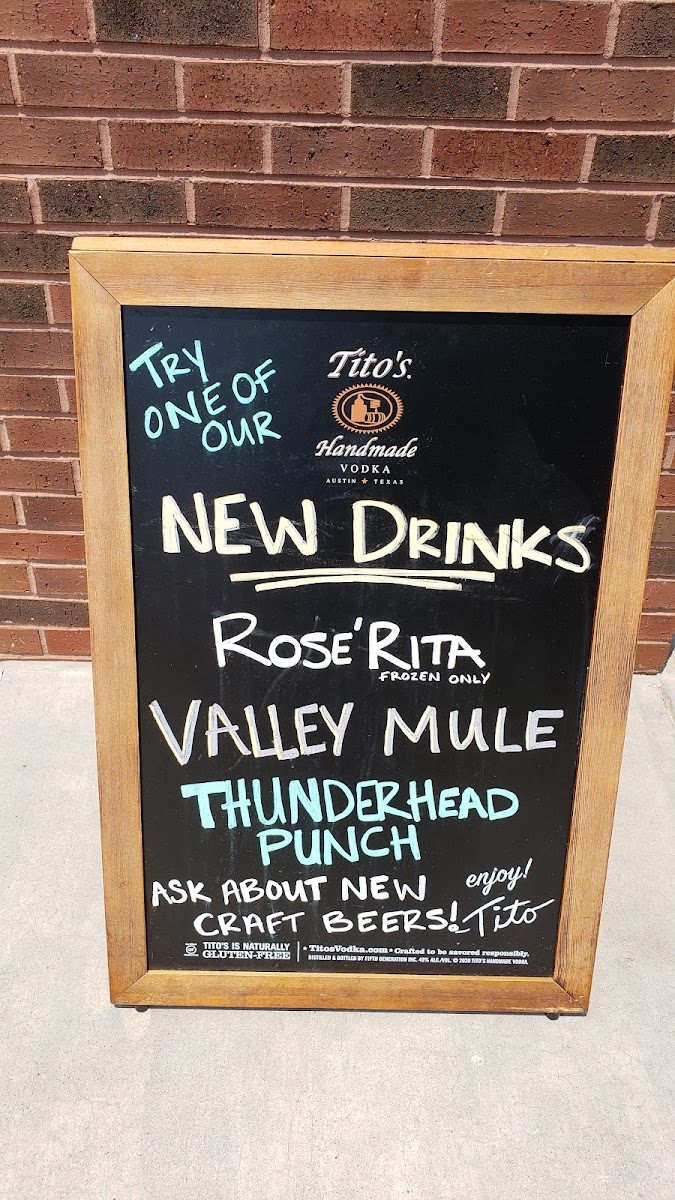 TRY
ONE OF
OUR
Tito's
Handmade
VODKA
AUSTIN ★ TEXAS
NEW DRINKS
ROSE'RITA
FROZEN ONLY
VALLEY MULE
THUNDERHEAD
PUNCH
ASK ABOUT NEW
CRAFT BEERS!
enjoy!
Tito
TITO'S IS NATURALLY
GLUTEN-FREE
• TitosVodka.com • Crafted to be savored responsibly.
DISTILLED & BOTTLED BY FIFTH GENERATION INC. 40% ALC./VOL. © 2020 TITO'S HANDMADE VODKA.